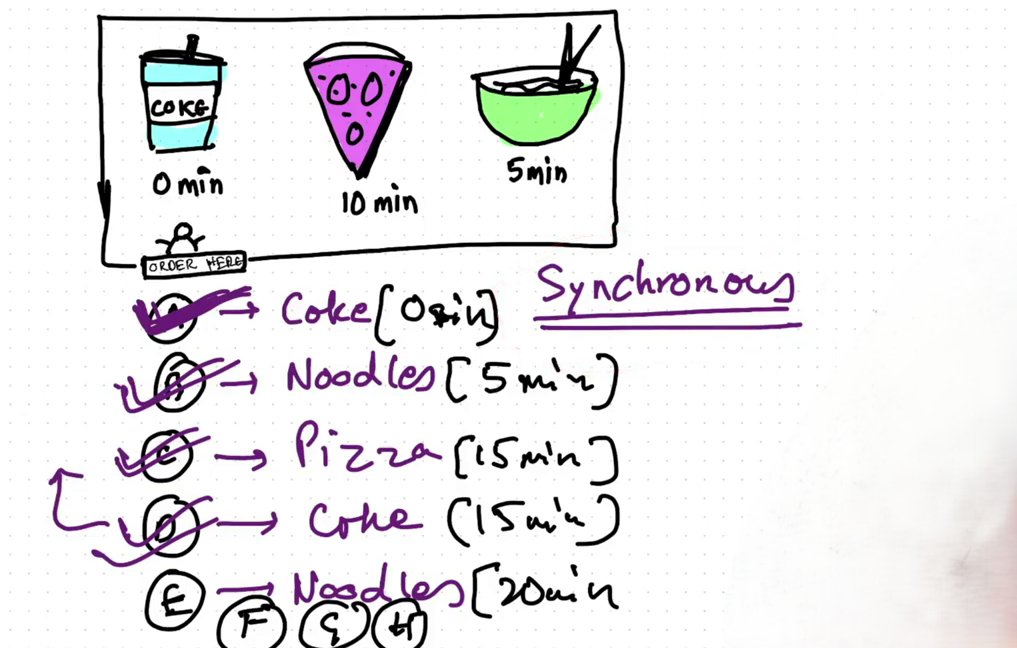 COKE
0 min
10 min
5 min
ORDER HERE
Synchronous
A → Coke [0min]
B → Noodles [5 min]
C → Pizza [15min]
D → Coke (15min)
E → Noodles [20min
F G H